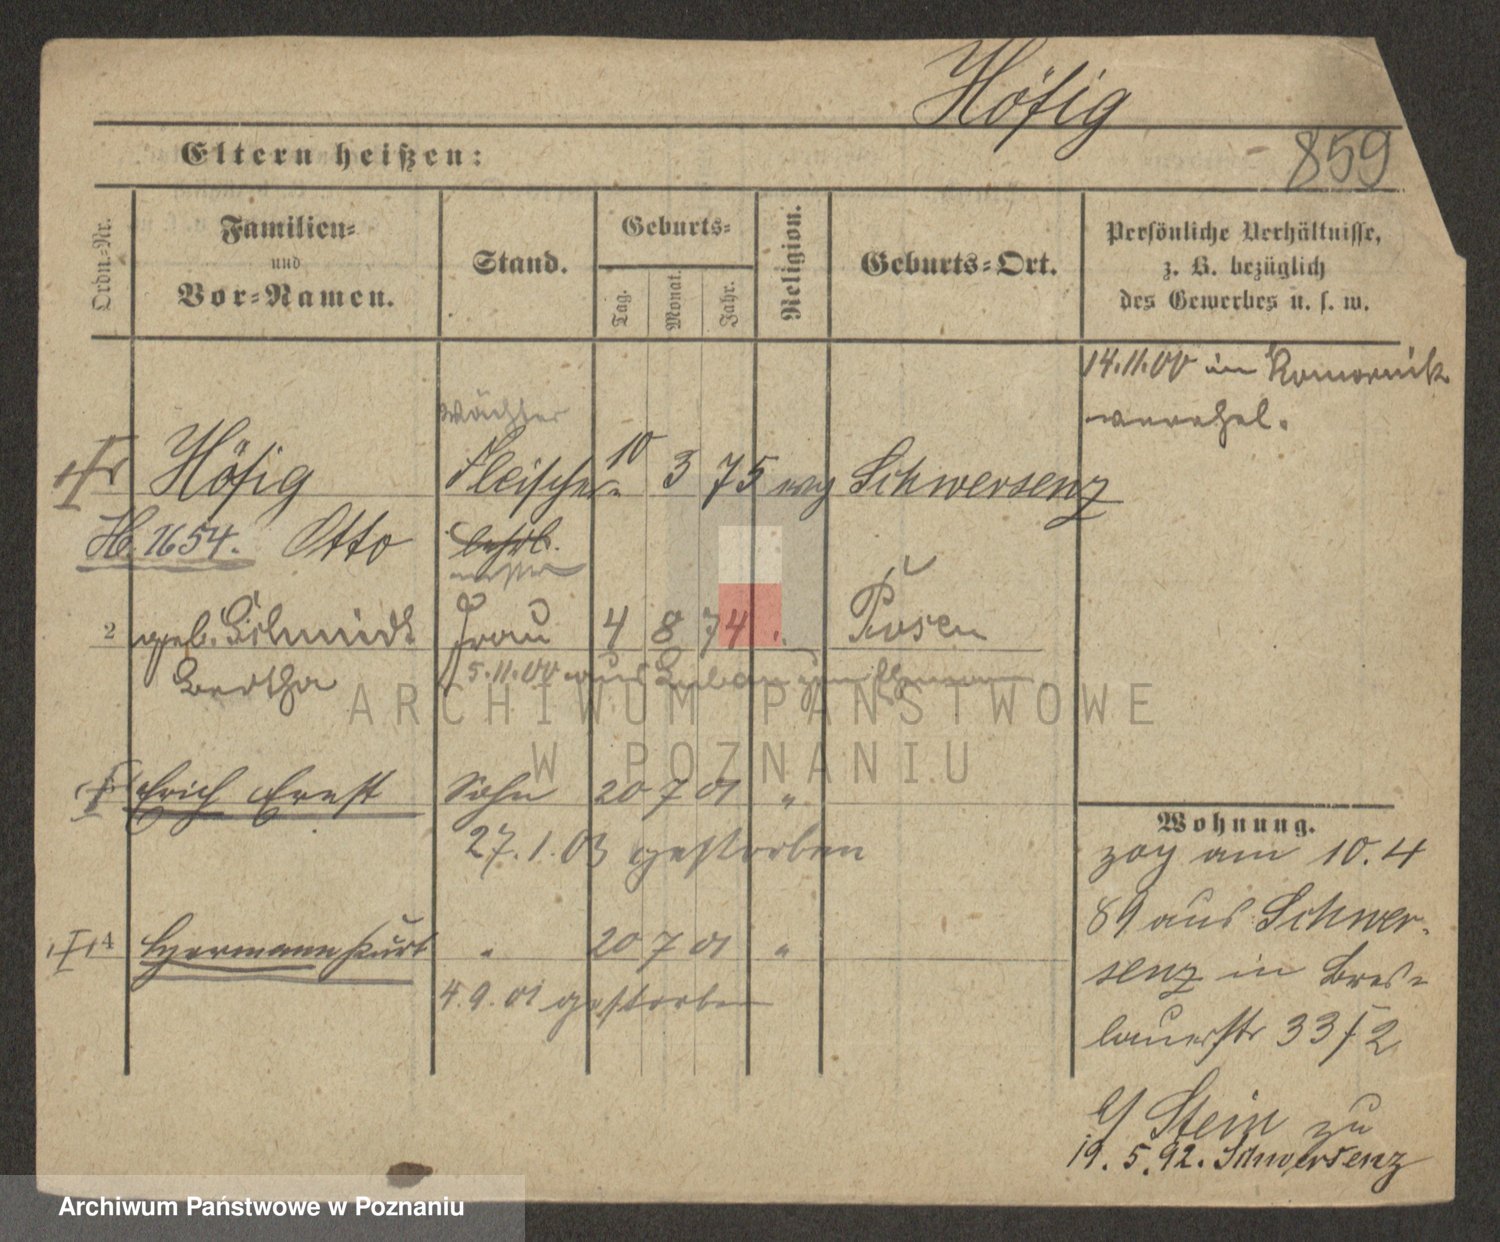 Höfig
Eltern heißen:
859
Ordn.-Nr.
Familien-
und
Vor-Namen.
Stand.
Geburts-
Tag.
Monat.
Jahr.
Religion.
Geburts-Ort.
Persönliche Verhältnisse,
z. B. bezüglich
des Gewerbes u. s. w.
14.11.00 in Komornik
verehel.
Wächter
Höfig Fleischer 10 3 75 evg Schwersenz
H. 1654. Otto lehrl.
2 geb. Schmidt Frau 4 8 74 Posen
Bertha 5.11.00 aus Luban zum Ehemann
ARCHIWUM PAŃSTWOWE
W POZNANIU
Erich Ernst Sohn 20 7 01 "
27.1.03 gestorben
4 Hermann Kurt " 20 7 01 "
4.9.01 gestorben
Wohnung.
zog am 10.4
89 aus Schwer-
senz in Bres-
lauerstr 33/2
b/ Stein zu
19.5.92. Schwersenz
Archiwum Państwowe w Poznaniu